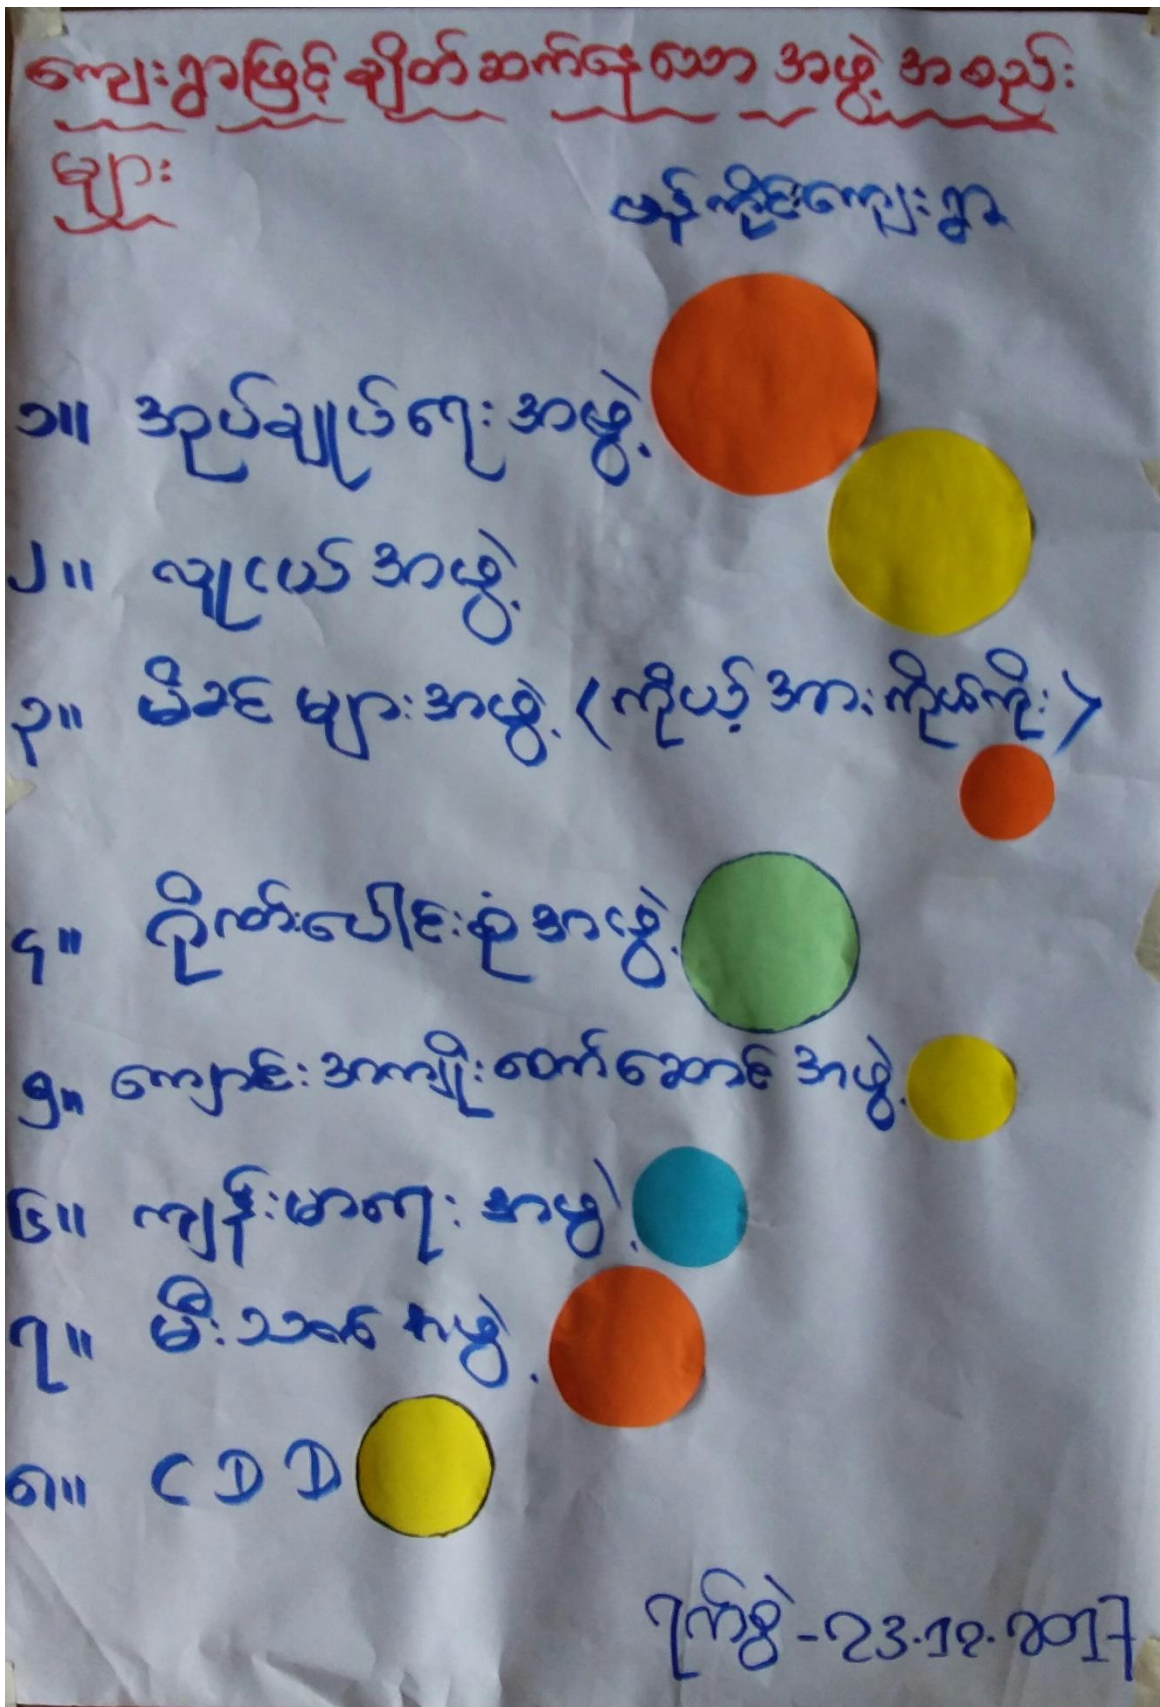 ကျေးရွာဖြင့် ချိတ်ဆက်နေသော အဖွဲ့အစည်း
များ
မန်ကိုင်းကျေးရွာ
၁။ အုပ်ချုပ်ရေးအဖွဲ့
၂။ လူငယ်အဖွဲ့
၃။ မိခင်များအဖွဲ့ (ကိုယ့်အားကိုယ်ကိုး)
၄။ ဂိုဏ်းပေါင်းစုံအဖွဲ့
၅။ ကျောင်းအကျိုးတော်ဆောင်အဖွဲ့
၆။ ကျန်းမာရေးအဖွဲ့
၇။ မီးသတ်အဖွဲ့
၈။ CDD
ရက်စွဲ - 23.12.2017